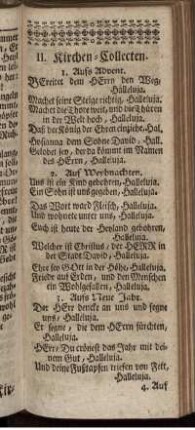 II. Kirchen-Collecten.
1. Aufs Advent.
BEreitet dem HErrn den Weg,
Halleluja.
Machet seine Steige richtig, Halleluja.
Machet die Thore weit, und die Thüren
in der Welt hoch, Halleluja.
Daß der König der Ehren einziehe, Hal.
Hosianna dem Sohne David, Hall.
Gelobet sey, der da kömmt im Namen
des HErrn, Halleluja.
2. Auf Weyhnachten.
Uns ist ein Kind gebohren, Halleluja.
Ein Sohn ist uns gegeben, Halleluja.
Das Wort ward Fleisch, Halleluja.
Und wohnete unter uns, Halleluja.
Euch ist heute der Heyland gebohren,
Halleluja.
Welcher ist Christus, der HERR in
der Stadt David, Halleluja.
Ehre sey GOtt in der Höhe, Halleluja.
Friede auf Erden, und den Menschen
ein Wohlgefallen, Halleluja.
3. Aufs Neue Jahr.
Der HErr dencke an uns und segne
uns, Halleluja.
Er segne, die den HErrn fürchten,
Halleluja.
HErr, Du crönest das Jahr mit dei-
nem Gut, Halleluja.
Und deine Fußtapfen triefen von Fett,
Halleluja.
4. Auf